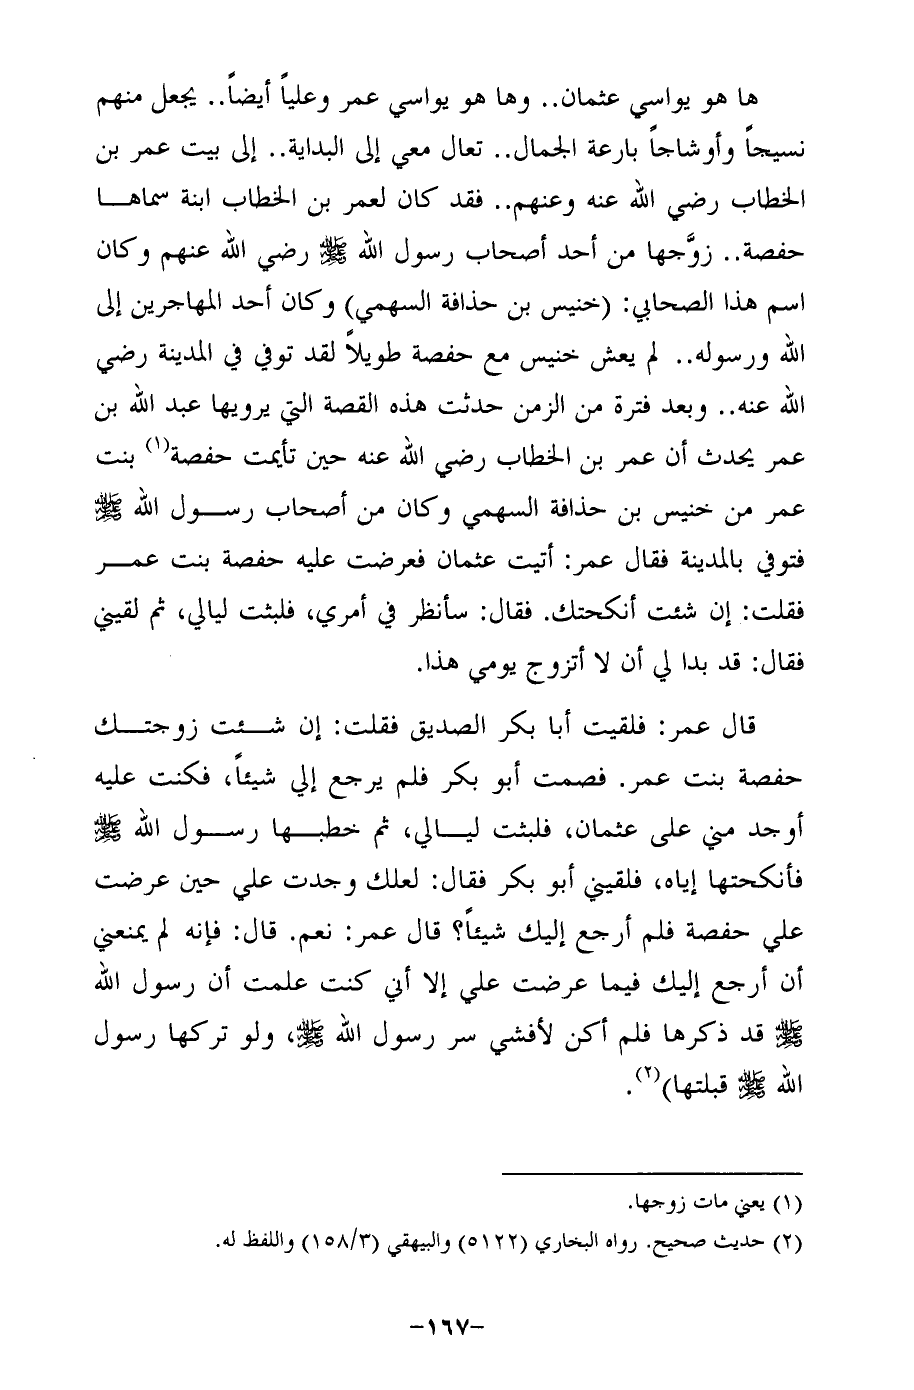 ها هو يواسي عثمان.. وها هو يواسي عمر وعلياً أيضاً.. يجعل منهم
نسيجاً وأوشاجاً بارعة الجمال.. تعال معي إلى البداية.. إلى بيت عمر بن
الخطاب رضي الله عنه وعنهم.. فقد كان لعمر بن الخطاب ابنة سماهـا
حفصة.. زوَّجها من أحد أصحاب رسول الله ﷺ رضي الله عنهم وكان
اسم هذا الصحابي: (خنيس بن حذافة السهمي) وكان أحد المهاجرين إلى
الله ورسوله.. لم يعش خنيس مع حفصة طويلاً لقد توفي في المدينة رضي
الله عنه.. وبعد فترة من الزمن حدثت هذه القصة التي يرويها عبد الله بن
عمر يحدث أن عمر بن الخطاب رضي الله عنه حين تأيمت حفصة(١) بنت
عمر من خنيس بن حذافة السهمي وكان من أصحاب رســول الله ﷺ
فتوفي بالمدينة فقال عمر: أتيت عثمان فعرضت عليه حفصة بنت عمــر
فقلت: إن شئت أنكحتك. فقال: سأنظر في أمري، فلبثت ليالي، ثم لقيني
فقال: قد بدا لي أن لا أتزوج يومي هذا.
قال عمر: فلقيت أبا بكر الصديق فقلت: إن شــئت زوجتــك
حفصة بنت عمر. فصمت أبو بكر فلم يرجع إلي شيئاً، فكنت عليه
أوجد مني على عثمان، فلبثت ليــالي، ثم خطبــها رســول الله ﷺ
فأنكحتها إياه، فلقيني أبو بكر فقال: لعلك وجدت علي حين عرضت
علي حفصة فلم أرجع إليك شيئاً؟ قال عمر: نعم. قال: فإنه لم يمنعني
أن أرجع إليك فيما عرضت علي إلا أني كنت علمت أن رسول الله
ﷺ قد ذكرها فلم أكن لأفشي سر رسول الله ﷺ، ولو تركها رسول
الله ﷺ قبلتها)(٢).
(١) يعني مات زوجها.
(٢) حديث صحيح. رواه البخاري (٥١٢٢) والبيهقي (١٥٨/٣) واللفظ له.
-١٦٧-